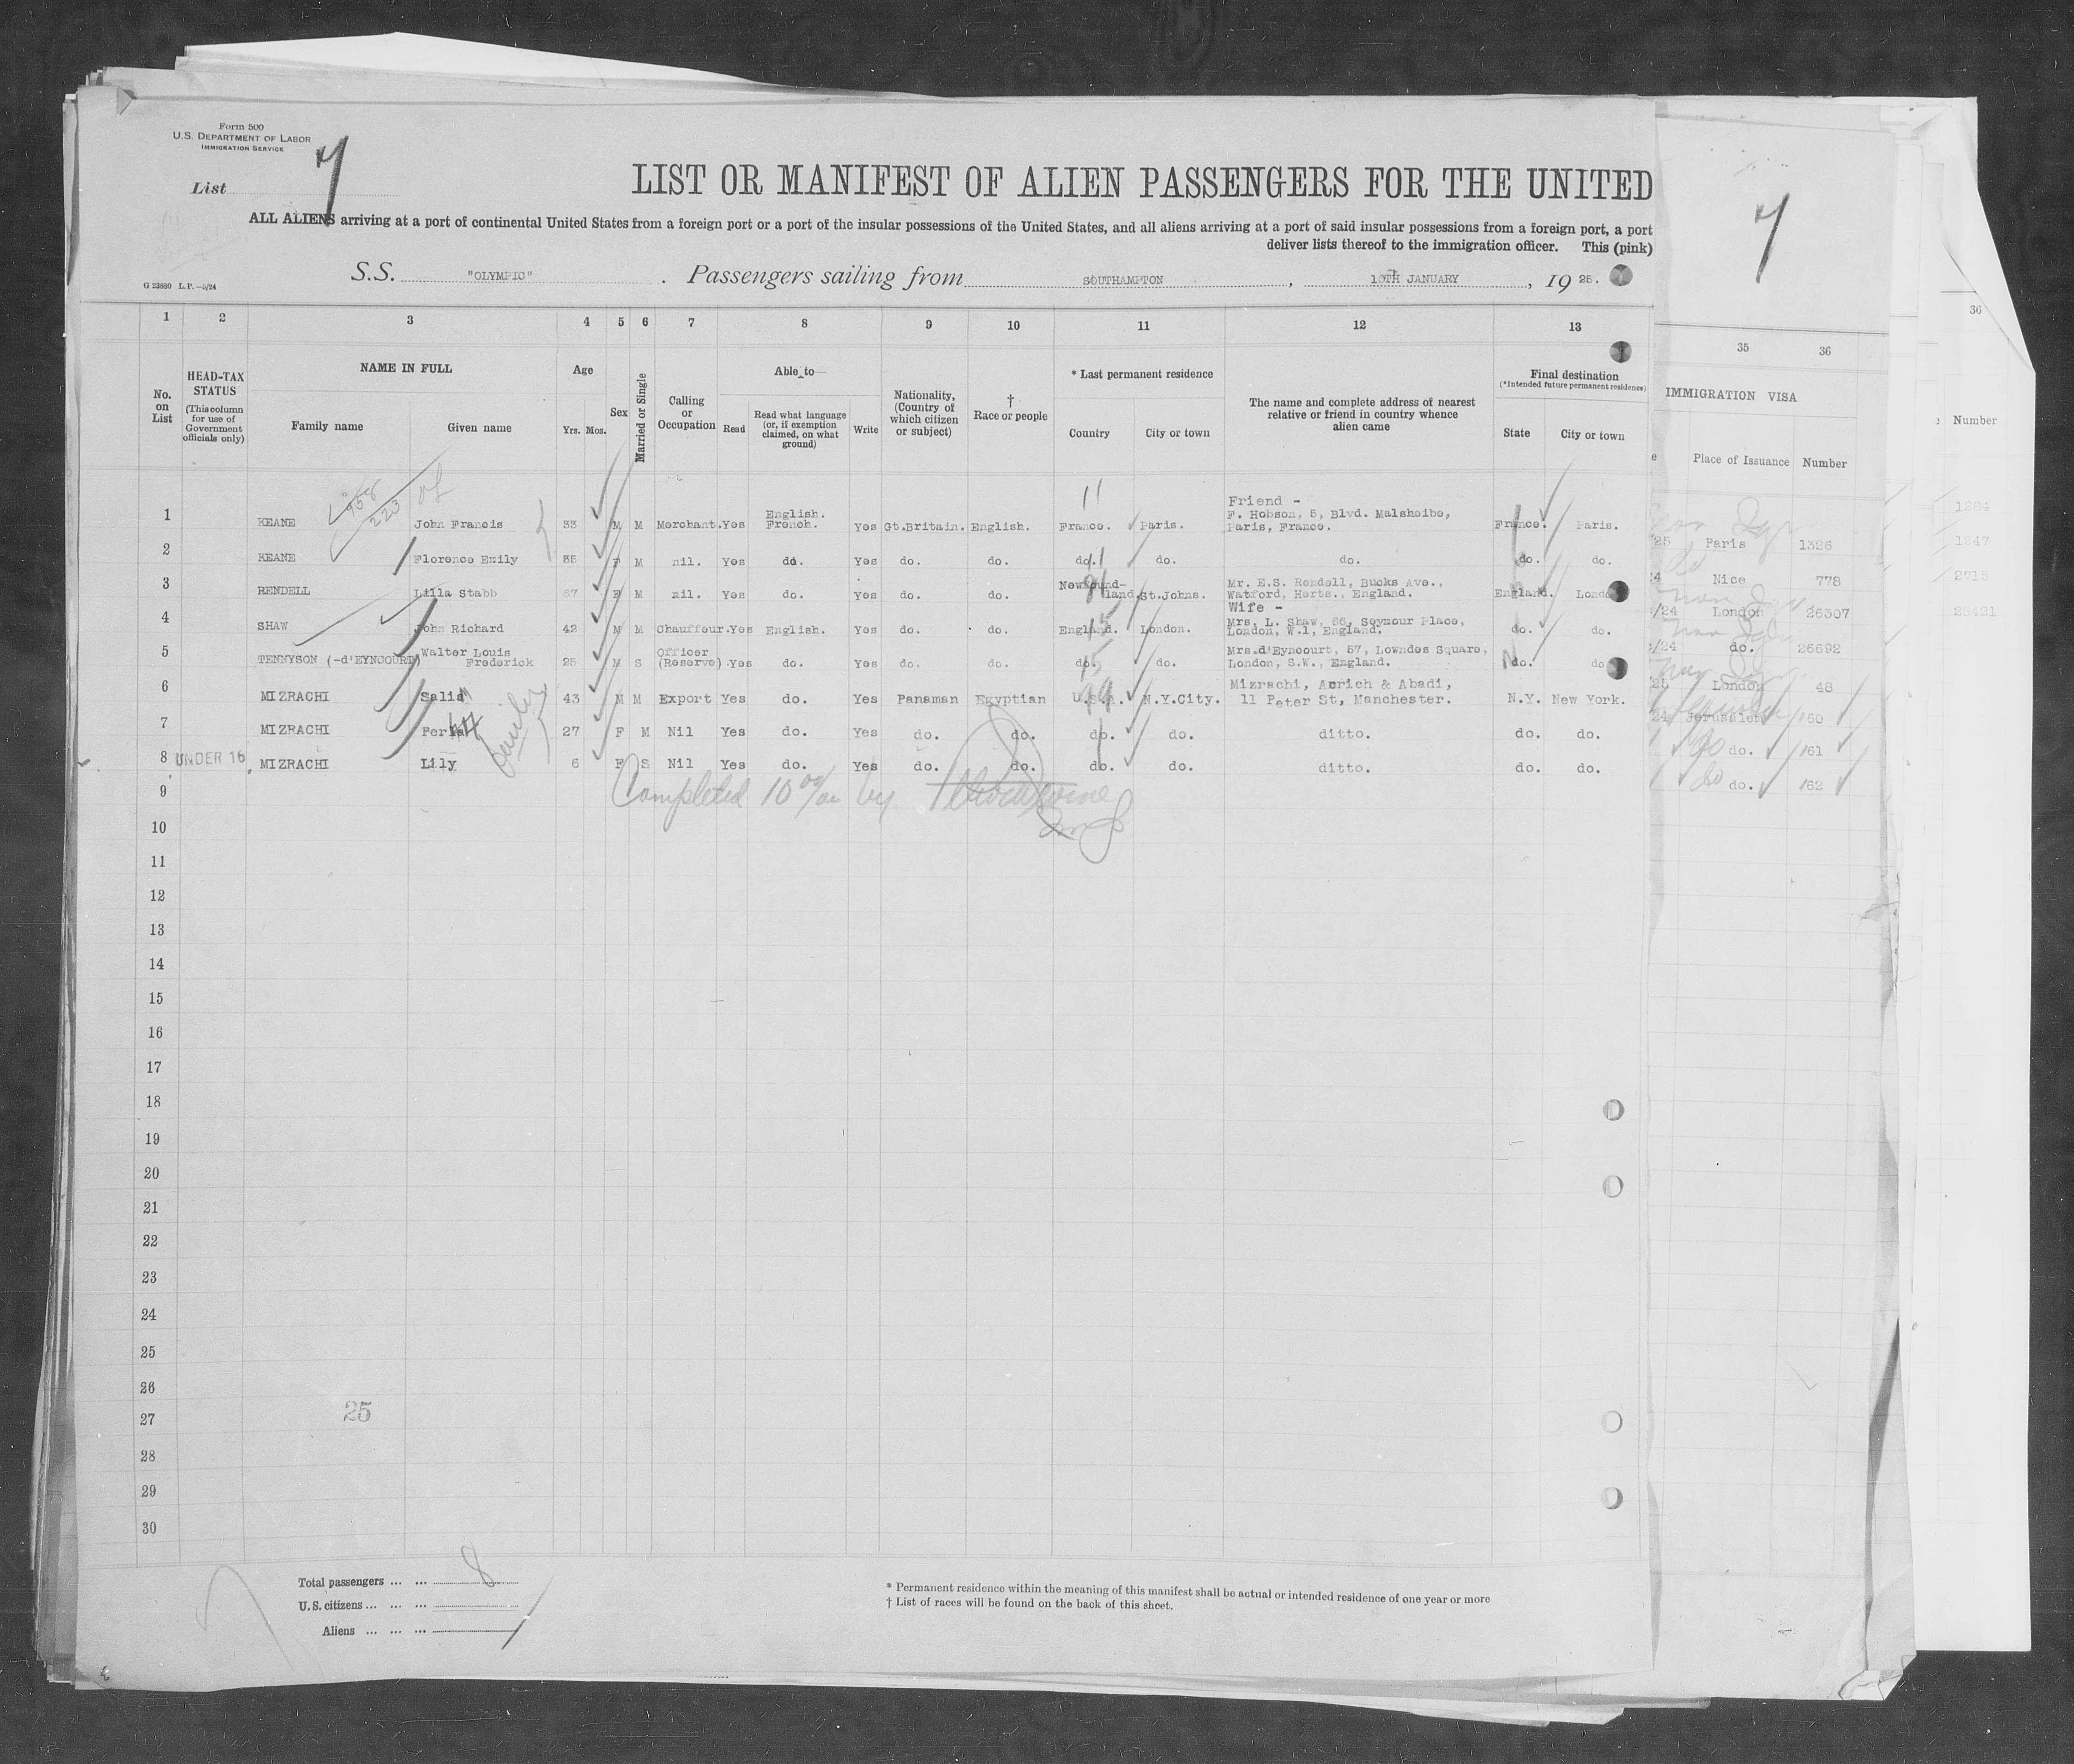 Form 500
U.S. DEPARTMENT OF LABOR
IMMIGRATION SERVICE
List 7
LIST OR MANIFEST OF ALIEN PASSENGERS FOR THE UNITED
ALL ALIENS arriving at a port of continental United States from a foreign port or a port of the insular possessions of the United States, and all aliens arriving at a port of said insular possessions from a foreign port, a port
deliver lists thereof to the immigration officer. This (pink)
S.S. "OLYMPIC". Passengers sailing from SOUTHAMPTON, JANUARY, 19 25.
G 23880 L.P.—5/24
7
1 2 3 4 5 6 7 8 9 10 11 12 13
35 36
36
No. on List
HEAD-TAX STATUS
(This column for use of Government officials only)
NAME IN FULL
Family name
Given name
Age
Yrs. Mos.
Sex
Married or Single
Calling or Occupation
Able to—
Read
Read what language (or, if exemption claimed, on what ground)
Write
Nationality, (Country of which citizen or subject)
† Race or people
* Last permanent residence
Country
City or town
The name and complete address of nearest relative or friend in country whence alien came
Final destination
(*Intended future permanent residence)
State
City or town
IMMIGRATION VISA
Place of Issuance Number
Number
1 KEANE John Francis 33 M M Merchant. Yes English. French. Yes Gt.Britain. English. France. Paris. Friend - F. Hobson, 5, Blvd. Malsheibe, Paris, France. France. Paris.
2 KEANE Florence Emily 35 F M nil. Yes do. Yes do. do. do. do. do. do. do.
3 RENDELL Lilla Stabb 67 F M nil. Yes do. Yes do. do. Newfound-land. St.Johns. Mr. E.S. Rendell, Bucks Ave., Watford, Herts., England. England.
4 SHAW John Richard 42 M M Chauffeur. Yes English. Yes do. do. England. London. Wife - Mrs. L. Shaw, 66, Seymour Place, London, W.1, England. do. do.
5 TENNYSON (-d'EYNCOURT) Walter Louis Frederick 25 M S Officer (Reserve). Yes do. Yes do. do. do. do. Mrs.d'Eyncourt, 57, Lowndes Square, London, S.W., England. do. do
6 MIZRACHI Salim 43 M M Export Yes do. Yes Panaman Egyptian U.S.A. N.Y.City. Mizrachi, Anrich & Abadi, 11 Peter St, Manchester. N.Y. New York.
7 MIZRACHI 27 F M Nil Yes do. Yes do. do. do. do. ditto. do. do.
8 UNDER 16 MIZRACHI Lily 6 F S Nil Yes do. Yes do. do. do. do. ditto. do. do.
family
Completed 10 by
Paris 1326
Nice 778
London 26307
do. 26692
London 48
Jerusalem 160
do. 161
do. 162
1247
2715
26421
9
10
11
12
13
14
15
16
17
18
19
20
21
22
23
24
25
26
27
28
29
30
25
Total passengers ... ... 8
U.S. citizens ... ... ...
Aliens ... ... ...
* Permanent residence within the meaning of this manifest shall be actual or intended residence of one year or more
† List of races will be found on the back of this sheet.